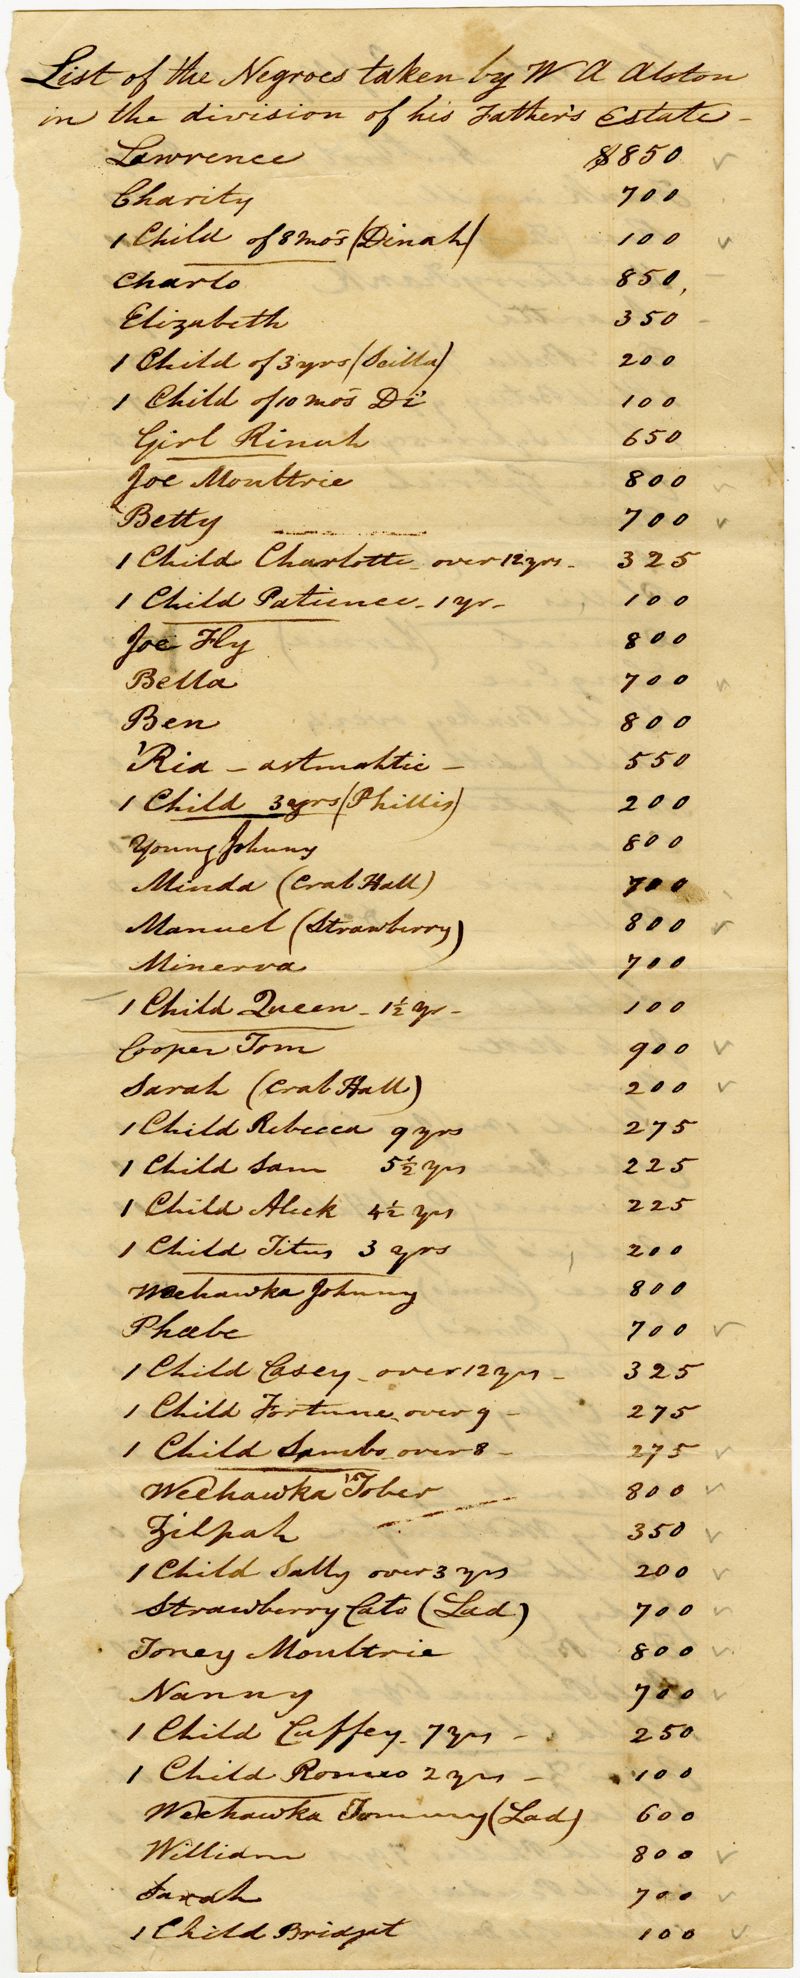 List of the Negroes taken by W A Alston
in the division of his Father's Estate -
Lawrence $850
Charity 700
1 Child of 8 mos (Dinah) 100
Charlo 850,
Elizabeth 350
1 Child of 3 yrs (Scilla) 200
1 Child of 10 mos Di 100
Girl Rinah 650
Joe Moultrie 800
Betty 700
1 Child Charlotte - over 12 yrs - 325
1 Child Patience - 1 yr - 100
Joe Fly 800
Bella 700
Ben 800
'Ria - astmahtic - 550
1 Child 3 yrs (Phillis) 200
Young Johnny 800
Minda (Crab Hall) 700
Manuel (Strawberry) 800
Minerva 700
1 Child Queen - 1½ yr - 100
Cooper Tom 900
Sarah (Crab Hall) 200
1 Child Rebecca 9 yrs 275
1 Child Sam 5½ yrs 225
1 Child Aleck 4½ yrs 225
1 Child Titus 3 yrs 200
Weehawka Johnny 800
Phœbe 700
1 Child Casey - over 12 yrs - 325
1 Child Fortune - over 9 - 275
1 Child Sambo - over 8 - 275
Weehawka 'Tober 800
Zilpah 350
1 Child Sally over 3 yrs 200
Strawberry Cato (Lad) 700
Toney Moultrie 800
Nanny 700
1 Child Cuffey - 7 yrs - 250
1 Child Romeo 2 yrs - 100
Weehawka Tommy (Lad) 600
William 800
Sarah 700
1 Child Bridget 100